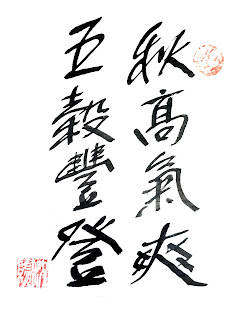 秋高氣爽
五穀豐登